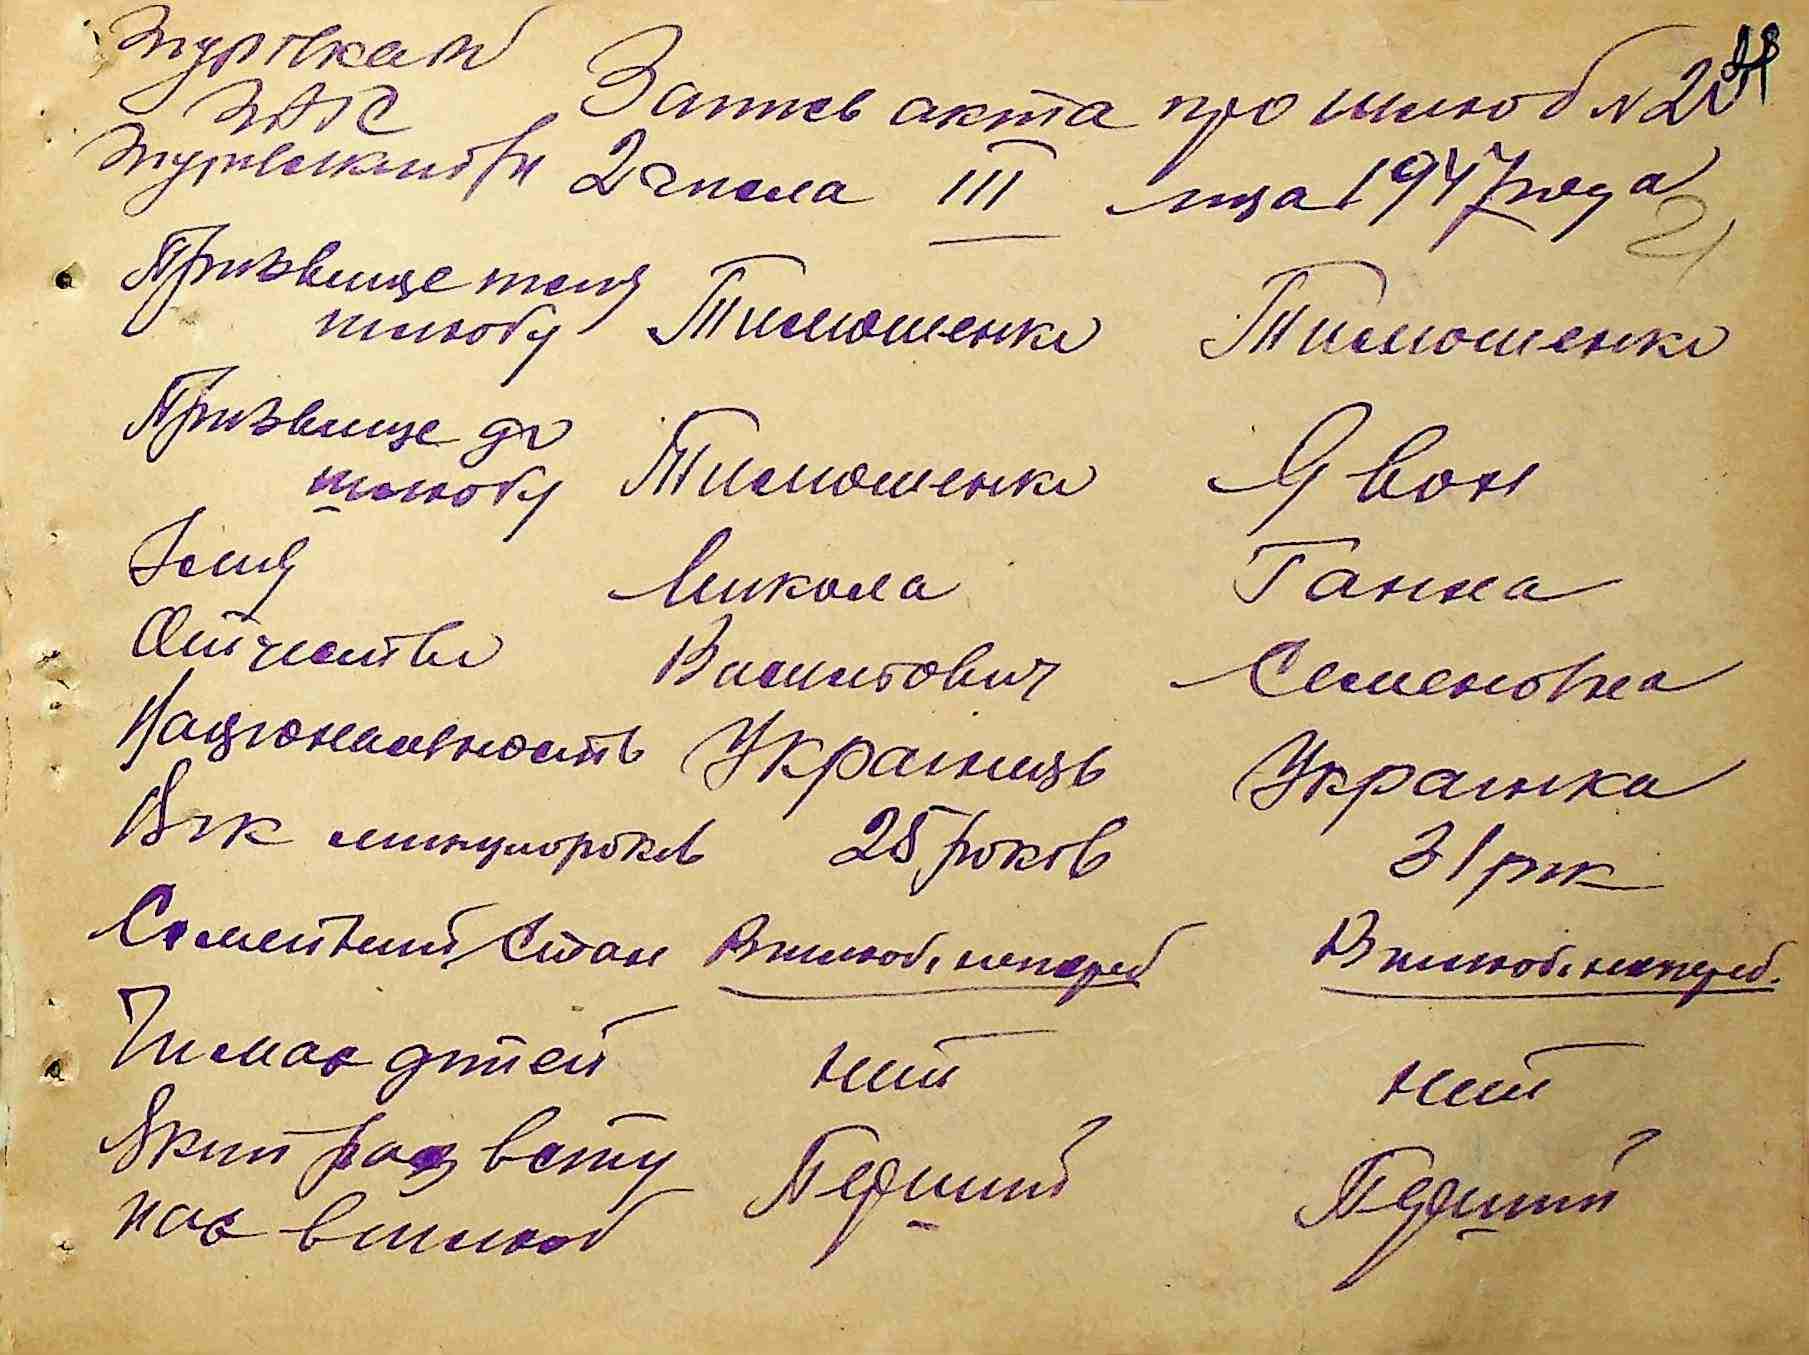 ЗАГС Запись акта про шлюб № 20
2 числа III м-ца 1947 года
21
Призвище після
шлюбу Тимошенко Тимошенко
Призвище до
шлюбу Тимошенко Явон
Імя Микола Ганна
Отчество Васильович Семеновна
Національность Українець Українка
Вік минуло років 25 років 31 рік
Семейний стан В шлюб. не переб В шлюб. не переб.
Чи має дітей ниї ниї
Який раз всту
пає в шлюб Перший Перший